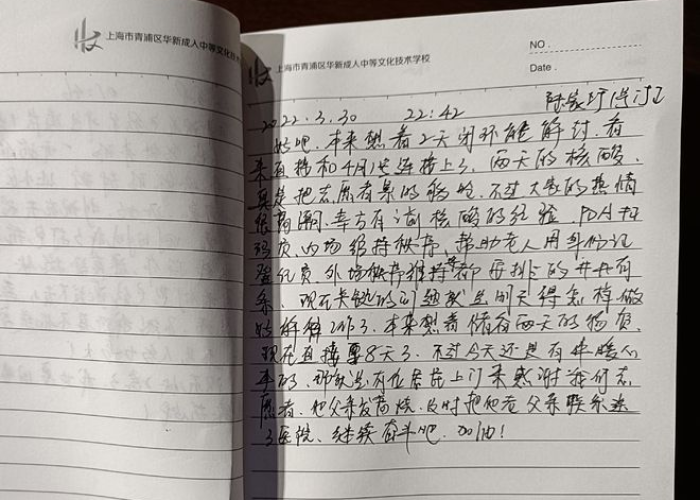 上海市青浦区华新成人中等文化技术
上海市青浦区华新成人中等文化技术学校
NO.
Date.
2022.3.30 22:42
好吧,本来想着2天闭环能解封,看
来直接和4月1号连接上了,两天的核酸,
真是把志愿者累的够呛,不过大家的热情
很高涨,幸亏有过核酸的经验,PDA扫
码员,内场维持秩序,帮助老人用身份证
登记员,外场秩序维持等都安排的井井有
条,现在关键的问题就是明天得怎样做
好解释工作了,本来想着储备两天的物资,
现在直接要8天了,不过今天还是有件暖人
事的,那就是有位居民上门来感谢我们志
愿者,他父亲发高烧,及时把他老父亲联系送
了医院,继续奋斗吧,加油!